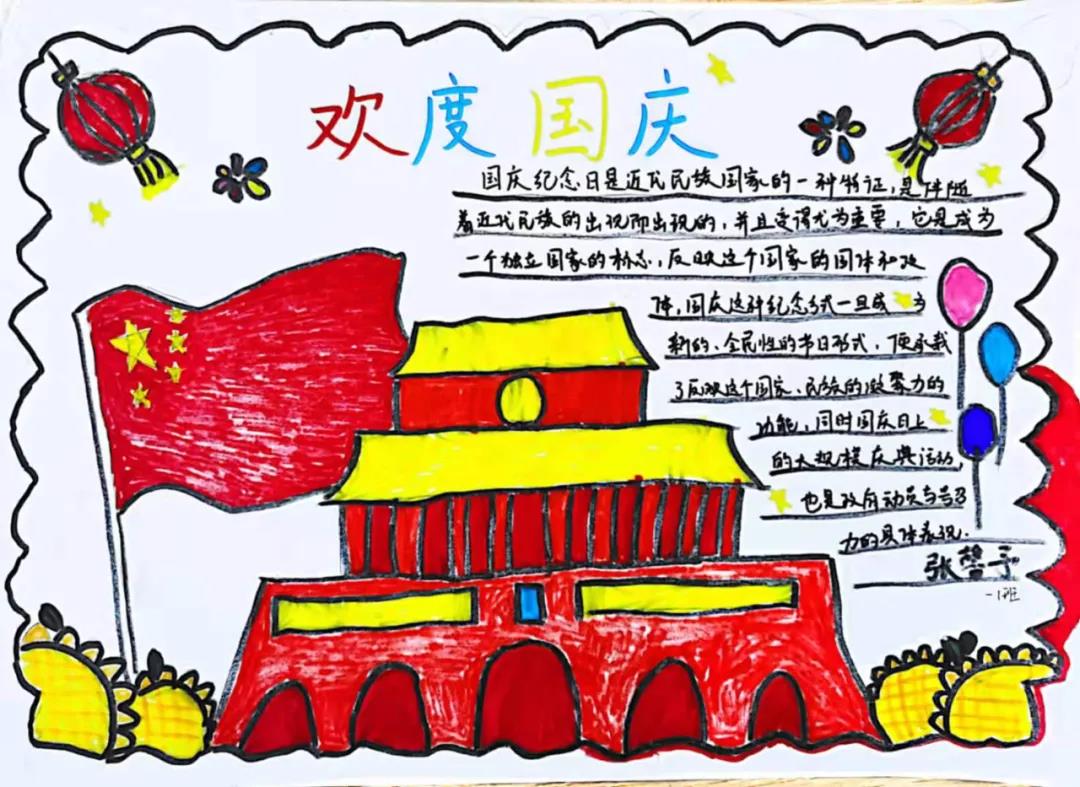 欢度国庆
国庆纪念日是近代民族国家的一种特征,是伴随
着近代民族的出现而出现的,并且变得尤为重要,它是成为
一个独立国家的标志,反映这个国家的国体和政
体,国庆这种纪念方式一旦成为
新的、全民性的节日形式,便承载
了反映这个国家、民族的凝聚力的
功能,同时国庆日上
的大规模庆典活动,
也是政府动员与号召
力的具体表现.
张馨予
一1班